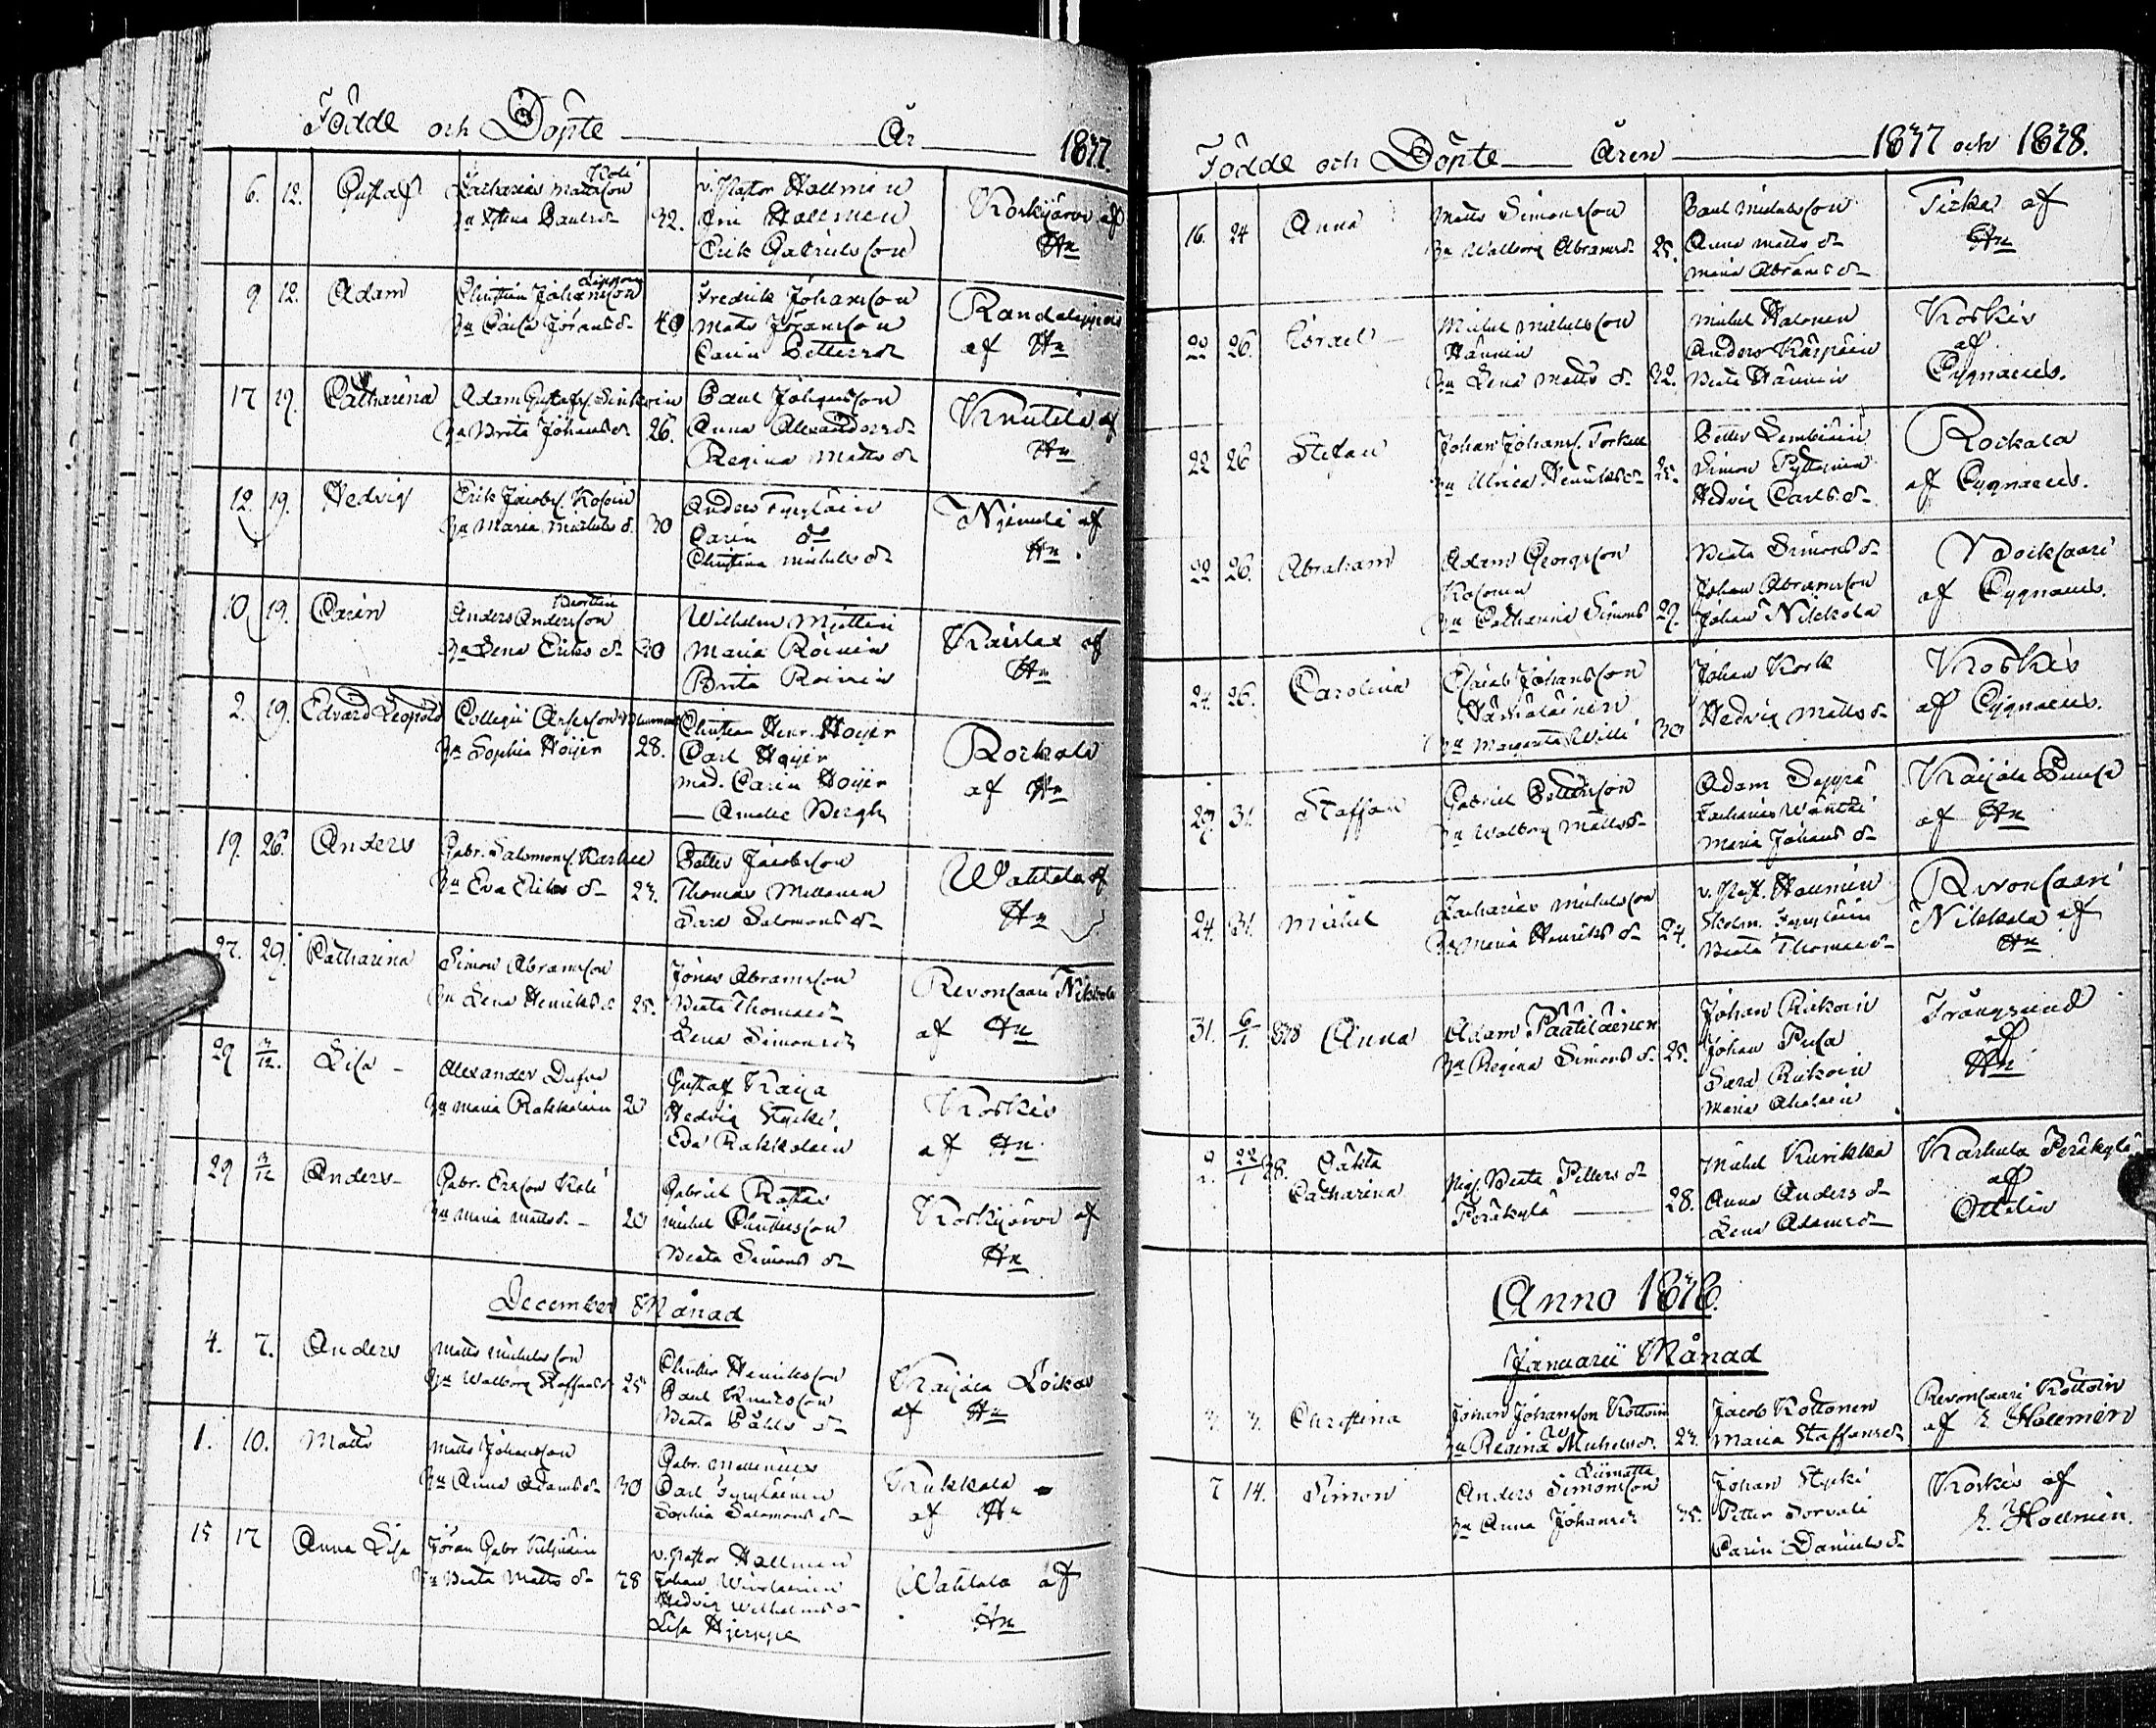 Födde och Döpte År 1837.
6. 12. Gustaf Zacharias Mattsson Koli
Hu Stina Paulsdr 32.
v. Pastor Hallmen
Eric Hallmen
Erik Gabrielsson
Korkijärvi af
Hn
9 12. Adam Christian Johansson
Hu Caisa Jöransdr 40
Fredrik Johansson
Matts Jöransson
Carin Pettersdr
af Hn
17 19. Catharina Adam Gustafs. Sinkoin
Hu Brita Johansdr 26.
Paul Johansson
Anna Alexandersdr
Regina Mattsdr
Knutila af
Hn
12. 19. Hedvig Erik Jacobs. Kosoin
Hu Maria Michelsdr 30
Anders Fyyläin
Carin do
Christina Michelsdr
Niemelä af
Hn.
10 19. Carin Anders Andersson
Hu Lena Ericsdr 30
Wilhelm Mjöttin
Maria Roinin
Brita Roinin
Kaislax af
Hn
2. 19. Edvard Leopold Collegii
Hu Sophia Hoijer 28.
Christian Henr. Hoijer
Carl Hoijer
Mad. Carin Hoijer
— Amalie Bergh
Rockala
af Hn
19. 26. Anders Gabr. Salomons. Karhu
Hu Eva Ericsdr 23.
Petter Jacobsson
Thomas Millonen
Sara Salomonsdr
Watilala af
Hn
27. 29. Catharina Simon Abramsson
Hu Lena Henriksdr 25.
Jonas Abramsson
Beata Thomasdr
Lena Simonsdr
Revonsaari Nikkola
af Hn
29 3/12. Lisa Alexander Dufva
Hu Maria Rakkolain 20
Gustaf Kaija
Hedvig Stycki
Eva Rakkolain
Koskis
af Hn.
29 3/12 Anders Gabr. Ersson Koli
Hu Maria Mattsdr 20
Gabriel Rastas
Michel Christersson
Beata Simonsdr
Korkijärvi af
Hn
December Månad
4. 7. Anders Matts Michelsson
Hu Walborg Staffansdr 25
Christer Henriksson
Paul Knutsson
Beata Påhlsdr
Kaijala Loikas
af Hn
1. 10. Matts Matts Johansson
Hu Anna Adamsdr 30
Gabr. Mollerius
Carl Fyyläinen
Sophia Salomonsdr
Kukkola
af Hn
15 17 Anna Lisa Jöran Gabr
Hu Beata Mattsdr 28
v. Pastor Hallmen
Johan
Hedvig Wilhelmsdr
Lisa Hjerppe
Watilala af
Hn
Födde och Döpte Åren 1837 och 1838.
16. 24 Anna Matts Simonsson
Hu Walborg Abramsdr 25.
Paul Michelsson
Anna Mattsdr
Maria Abramsdr
Ticka af
Hn
22 26. Israel Michel Michelsson
Hännin
Hu Lena Mattsdr 32.
Michel Halonen
Anders Karpain
Beata Hännin
Koskis
af
Cygnaeus.
22 26 Stefan Johan Johans. Torkell
Hu Ulrica Henriksdr 25.
Petter Lembiäin
Simon Pyttynin
Hedvig Carlsdr
Rockala
af Cygnaeus.
22 26. Abraham Adam Georgsson
Kosonen
Hu Catharina Simonsd 29.
Beata Simonsdr
Johan Abramsson
Johan Nikkola
Woiksaari
af Cygnaeus.
24. 26. Carolina Esaias Johansson
Hämäläinen
Hu Margareta Willi 30
Johan Kork
Hedvig Mattsdr
Koskis
af Cygnaeus.
29. 31. Staffan Gabriel Pettersson
Hu Walborg Mattsdr
Adam Seppä
Zacharias Wänttä
Maria Johansdr
Kaijala
af Hn
24. 31. Michel Zacharias Michelsson
Hu Maria Henriksdr 24.
v. Past. Hallmén
Skolm. Fyyläin
Beata Thomasdr
Revonsaari
Nikkola af
Hn
31. 6/1. 838 Anna Adam Päätiläinen
Hu Regina Simonsdr 25.
Johan Rikoin
Johan Pusa
Sara Rikoin
Maria Aholain
Trångsund
af
Hn
22/1 38. Cajsa
Catharina
Pig. Beata Pettersdr
Peräkylä 28.
Michel Kurikka
Anna Andersdr
Lena Adamsdr
Karhula Peräkylä
af
Ottelin
Anno 1838.
Januarii Månad
3. 3. Christina Johan Johansson Kottoin
Hu Regina Michelsdr. 23.
Jacob Kottonen
Maria Staffansdr
Revonsaari Kottoin
af E. Hallmén
7 14. Simon Anders Simonsson Liimatta
Hu Anna Johansdr 35.
Johan Stycki
Petter Sorvali
Carin Danielsdr
Koskis af
E. Hallmén.